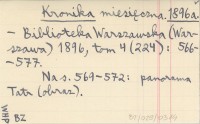 Kronika miesięczna. 1896a.
- Biblioteka Warszawska (War-
szawa) 1896, tom 4 (224) : 566-
-577.
Na s. 569-572: panorama
Tatr (obraz).
WHP BZ